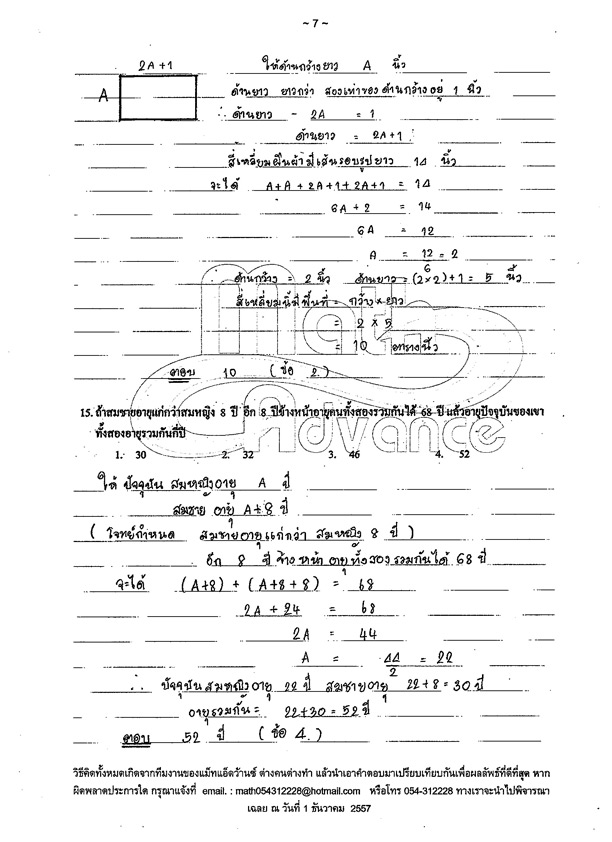 ~ 7 ~
2A+1 ให้ด้านกว้างยาว A นิ้ว
A ด้านยาว ยาวกว่า สองเท่าของ ด้านกว้างอยู่ 1 นิ้ว
∴ ด้านยาว - 2A = 1
ด้านยาว = 2A+1
สี่เหลี่ยมผืนผ้ามีเส้นรอบรูปยาว 14 นิ้ว
จะได้ A+A + 2A+1 + 2A+1 = 14
6A + 2 = 14
6A = 12
A = 12/6 = 2
ด้านกว้าง = 2 นิ้ว ด้านยาว = (2×2)+1 = 5 นิ้ว
สี่เหลี่ยมนี้มีพื้นที่ = กว้าง × ยาว
= 2 × 5
= 10 ตารางนิ้ว
ตอบ 10 (ข้อ 2.)
Math Advance
15. ถ้าสมชายอายุแก่กว่าสมหญิง 8 ปี อีก 8 ปีข้างหน้าอายุคนทั้งสองรวมกันได้ 68 ปี แล้วอายุปัจจุบันของเขา
ทั้งสองอายุรวมกันกี่ปี
1. 30 2. 32 3. 46 4. 52
ให้ ปัจจุบัน สมหญิงอายุ A ปี
สมชาย อายุ A+8 ปี
( โจทย์กำหนด สมชายอายุแก่กว่า สมหญิง 8 ปี )
อีก 8 ปี ข้างหน้า อายุทั้งสองรวมกันได้ 68 ปี
จะได้ (A+8) + (A+8+8) = 68
2A + 24 = 68
2A = 44
A = 44/2 = 22
∴ ปัจจุบันสมหญิงอายุ 22 ปี สมชายอายุ 22+8 = 30 ปี
อายุรวมกัน = 22+30 = 52 ปี
ตอบ 52 ปี (ข้อ 4.)
วิธีคิดทั้งหมดเกิดจากทีมงานของแม็ทแอ็ดว้านซ์ ต่างคนต่างทำ แล้วนำเอาคำตอบมาเปรียบเทียบกันเพื่อผลลัพธ์ที่ดีที่สุด หาก
ผิดพลาดประการใด กรุณาแจ้งที่ email. : math054312228@hotmail.com หรือโทร 054-312228 ทางเราจะนำไปพิจารณา
เฉลย ณ วันที่ 1 ธันวาคม 2557